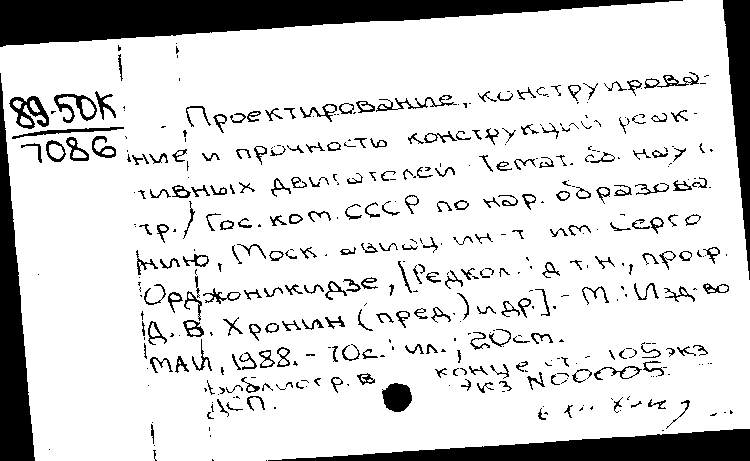 89-50К
7086
Проектирование, конструирова-
ние и прочность конструкций реак-
тивных двигателей. Темат. сб. науч.
тр. / Гос. ком. СССР по нар. образова
нию, Моск. авиац. ин-т им. Серго
Орджоникидзе, [Редкол.: д. т. н., проф.
Д. В. Хронин (пред.) и др]. - М.: Изд-во
МАИ, 1988. - 70с.: ил.; 20см.
Библиогр. в конце ст. - 105 экз
ДСП. экз N00005